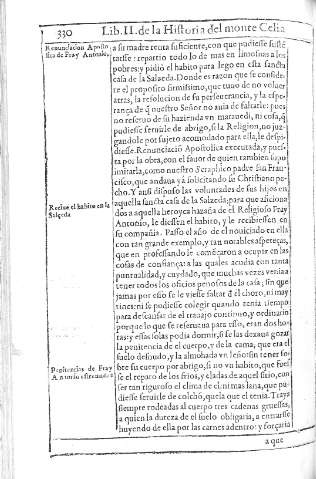 330 Lib. II. de la Historia del monte Celia
Renunciacion Apostolica de Fray Antonio.
Recibe el habito en la Salçeda
Penitencias de Fray Antonio
a su madre renta suficiente, con que pudiesse sustẽ
tarse: repartio todo lo de mas en limosnas a los
pobres: y pidiò el habito para lego en esta sancta
casa de la Salzeda. Donde es razon que se conside-
re el proposito firmissimo, que tuuo de no voluer
atras, la resolucion de su perseuerancia, y la espe-
rança de q̃ nuestro Señor no auia de faltarle: pues
no reseruo de su hazienda vn marauedi, ni cosa, q̃
pudiesse seruirle de abrigo, si la Religion, no juz-
gandole por sujeto acomodado para ella, le despi-
diesse. Renunciaciõ Apostolica executada, y pues-
ta por la obra, con el fauor de quien tambien supo
imitarla, como nuestro Seraphico padre San Fran-
cisco, que andaua ya solicitando su Christiano pe-
cho. Y assi dispuso las voluntades de sus hijos en
aquella sancta casa de la Salzeda, para que aficiona
dos a aquella heroyca hazaña de el Religioso Fray
Antonio, le diessen el habito, y le recibiessen en
su compañia. Passo el año de el nouiciado en ella
con tan grande exemplo, y tan notables asperezas,
que en professando le començaron a ocupar en las
cosas de confiança: a las quales acudia con tanta
puntualidad, y cuydado, que muchas vezes venia a
tener todos los oficios penosos de la casa; sin que
jamas por esso se le viesse faltar ẽ el choro, ni may
tines: ni se pudiesse colegir quando tenia tiempo
para descansar de el trabajo continuo, y ordinario
porque lo que se reseruaua para esso, eran dos ho-
ras: y essas solas podia dormir, si se las dexaua gozar
la penitencia de el cuerpo, y de la cama, que era el
suelo desnudo, y la almohada vn leño: sin tener so-
bre su cuerpo por abrigo, si no vn habito, que fues
se el reparo de los frios, y eladas de aquel sitio, con
ser tan riguroso el clima de el, ni mas lana, que pu-
diesse seruirle de colchõ, que la que el tenia. Traya
siempre rodeadas al cuerpo tres cadenas gruessas,
a quien la dureza de el suelo obligaria, a entrarse
huyendo de ella por las carnes adentro: y forçaria
a que